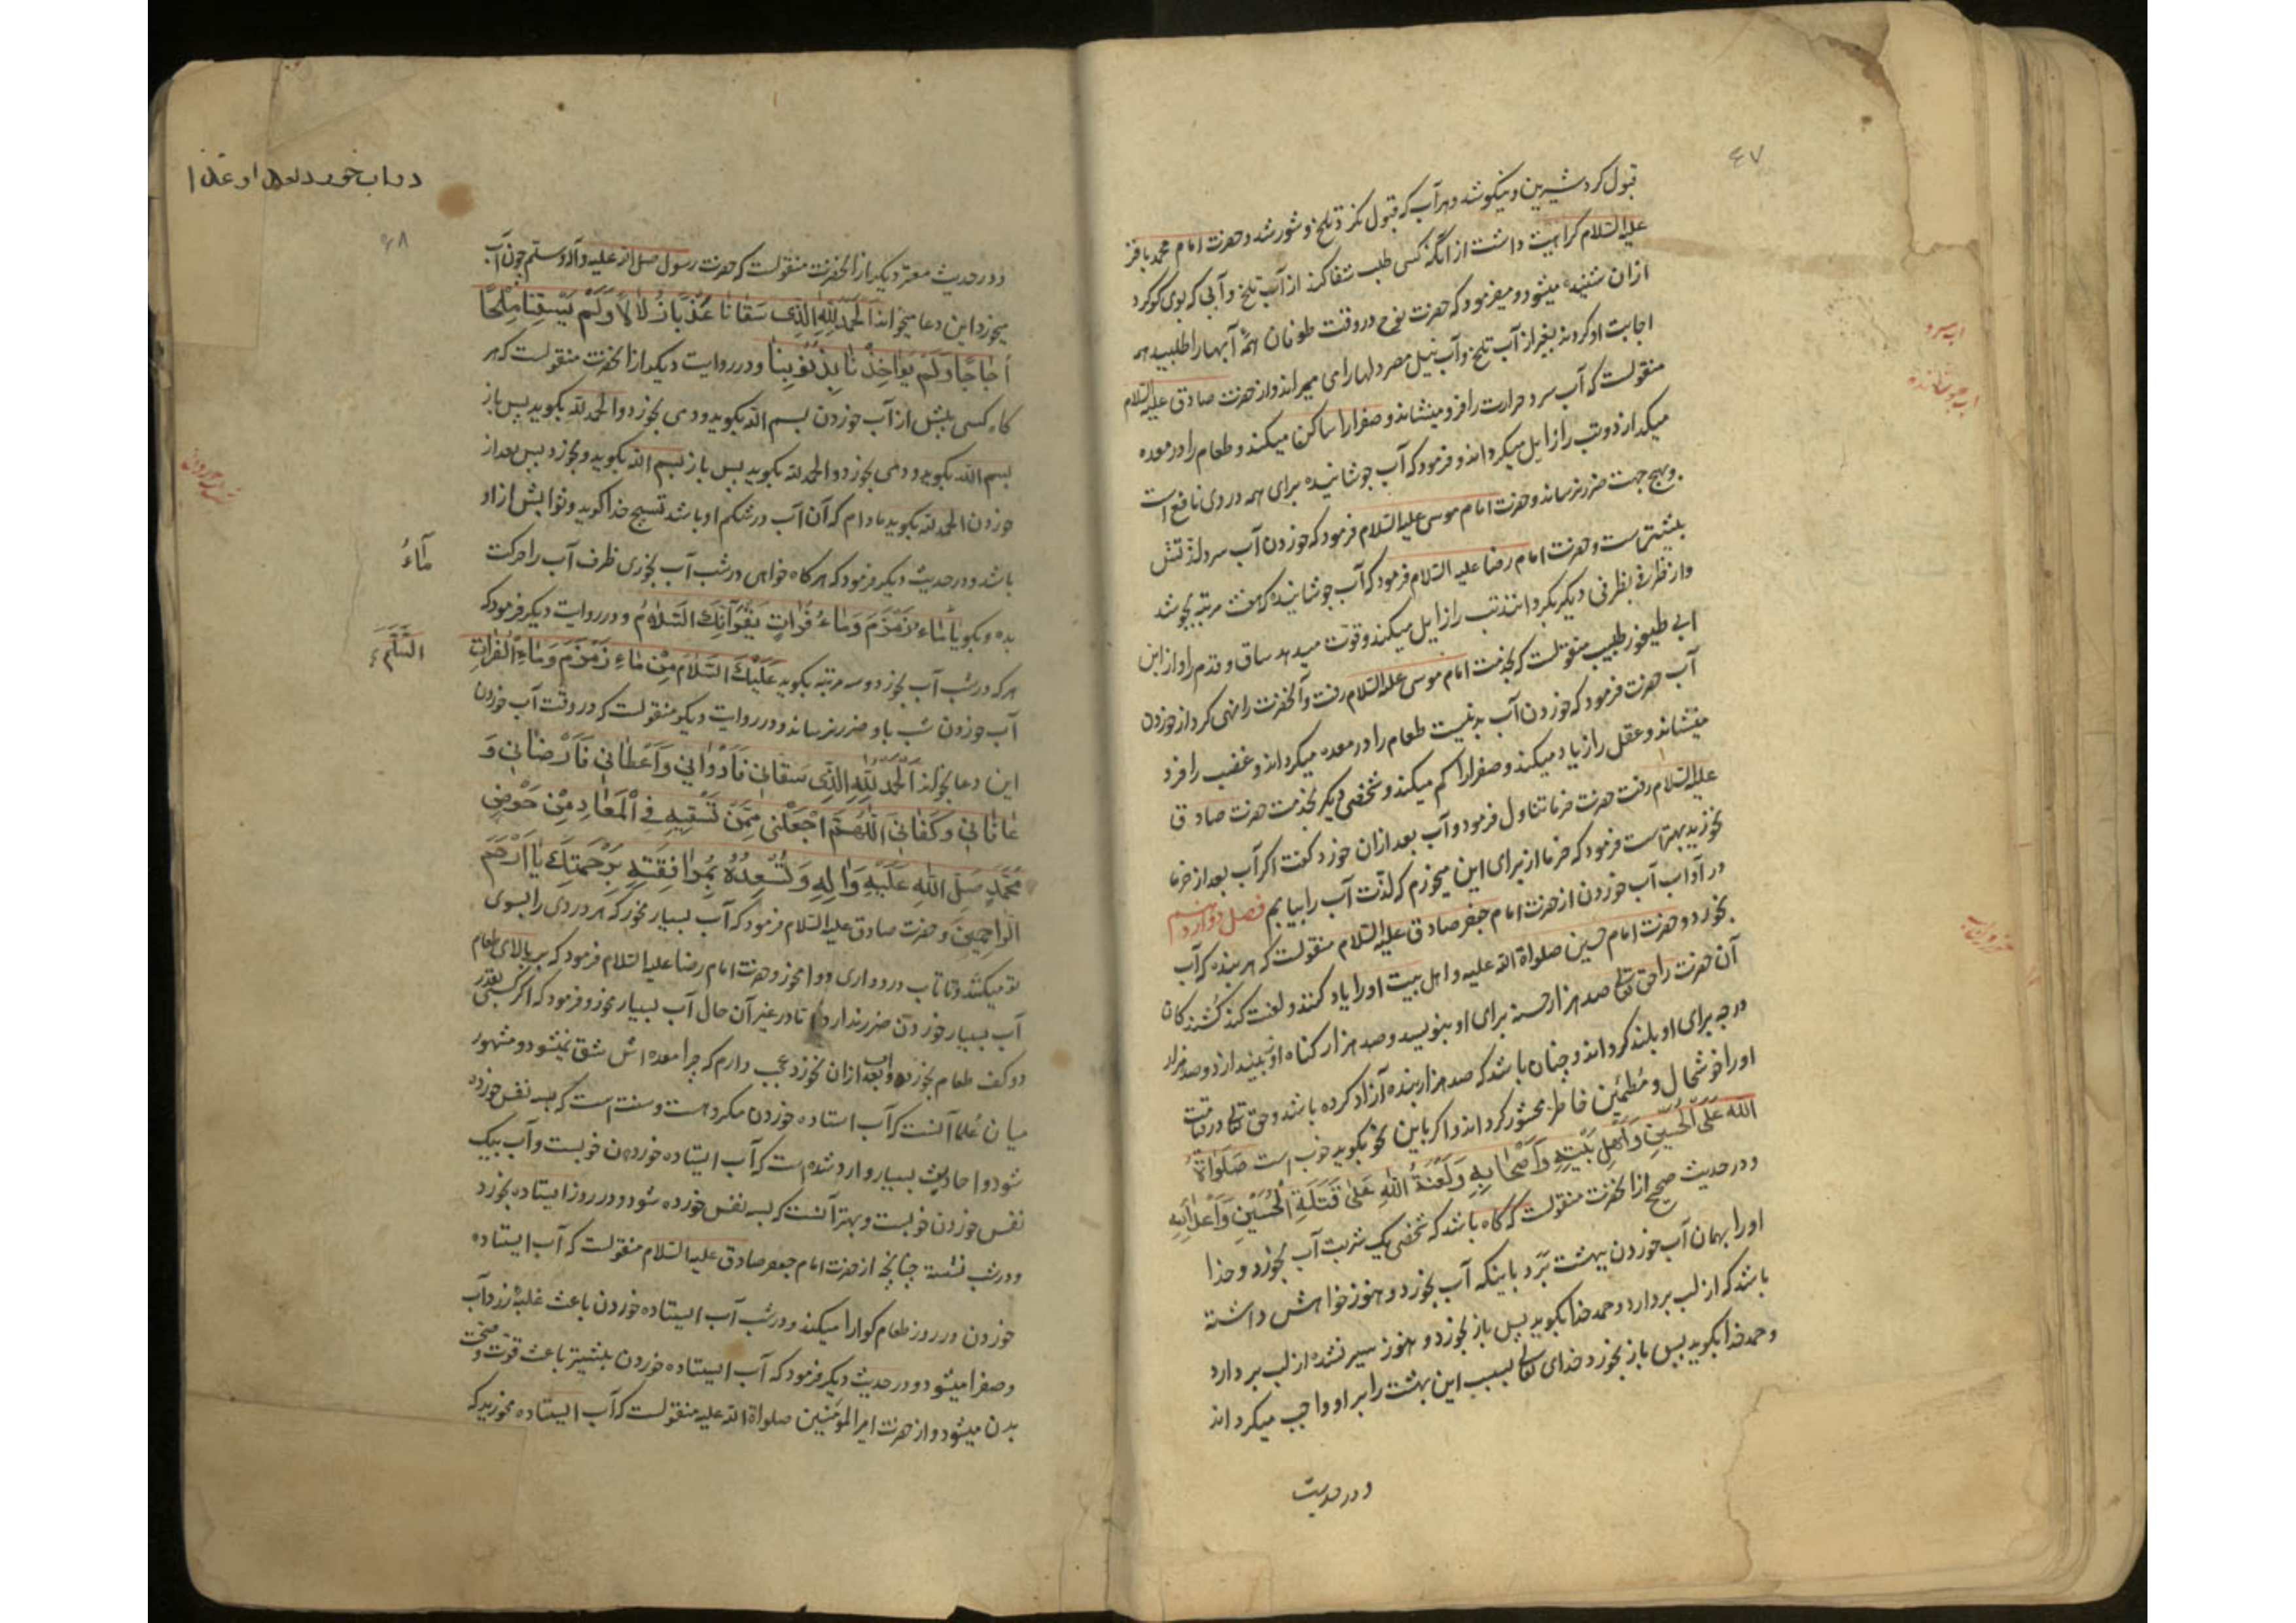 ٤٧
قبول کرد شیرین و نیکو شد و هر آب که قبول نکرد تلخ و شور شد و حضرت امام محمد باقر
علیه السلام کراهیت داشت از آنکه کسی طلب شفا کند از آب تلخ و آبی که بوی کوکرد
ازان شنیده میشود و میفرمود که حضرت نوح در وقت طوفان همهٔ آبها را طلبید همه
اجابت او کردند بغیر از آب تلخ و آب نیل مصر دلها را می میراند و از حضرت صادق علیه السلام
منقولست که آب سرد حرارت را فرو مینشاند و صفرا را ساکن میکند و طعام را در معده
میکدازد و تب را زایل میکرداند و فرمود که آب جوشانیده برای همه دردی نافع است
و بهیچ جهت ضرر نرساند و حضرت امام موسی علیه السلام فرمود که خوردن آب سرد لذتش
بیشتر است و حضرت امام رضا علیه السلام فرمود که آب جوشانیده که هفت مرتبه بجوشد
و از ظرفی بظرفی دیکر بکردانند تب را زایل میکند و قوت میدهد ساق و قدم را و از ابن
ابی طیفور طبیب منقولست که بخدمت امام موسی علیه السلام رفت و آنحضرت را نهی کرد از خوردن
آب حضرت فرمود که خوردن آب بد نیست طعام را در معده میکرداند و غضب را فرو
مینشاند و عقل را زیاد میکند و صفرا را کم میکند و شخصی دیکر بخدمت حضرت صادق
علیه السلام رفت حضرت خرما تناول فرمود و آب بعد ازان خورد کفت اکر آب بعد از خرما
نخورید بهتر است فرمود که خرما از برای این میخورم که لذّت آب را بیابم فصل دوازدهم
در آداب آب خوردن از حضرت امام جعفر صادق علیه السلام منقولست که هر بنده که آب
بخورد و حضرت امام حسین صلواة الله علیه و اهل بیت او را یاد کند و لعنت کند کشندکان
آن حضرت را حق تعالی صد هزار حسنه برای او بنویسد و صد هزار کناه او بیندازد و صد هزار
درجه برای او بلند کرداند و چنان باشد که صد هزار بنده آزاد کرده باشد و حق تعالی در قیامت
او را خوشحال و مطمئن خاطر محشور کرداند و اکر باین نحو بکوید خوب است صَلَواةُ
اللهِ عَلَی الْحُسَیْنِ وَ اَهْلِ بَیْتِهِ وَ اَصْحَابِهِ وَ لَعْنَةُ اللهِ عَلی قَتَلَةِ الْحُسَیْنِ وَ اَعْدائِهِ
و در حدیث صحیح از آنحضرت منقولست که کاه باشد که شخصی یک شربت آب بخورد و خدا
او را بهمان آب خوردن ببهشت بَرَد باینکه آب بخورد و هنوز خواهش داشته
باشد که از لب بردارد و حمد خدا بکوید پس باز بخورد و هنوز سیر نشده از لب بردارد
و حمد خدا بکوید پس باز بخورد خدای تعالی بسبب این بهشت را بر او واجب میکرداند
و در حدیث
اب سرد
اب جوشانده
٤٨
و در حدیث معتبر دیکر از آنحضرت منقولست که حضرت رسول صلی الله علیه و آله و سلّم چون آب
میخورد این دعا میخواند اَلْحَمْدُ لِلّهِ الَّذِی سَقَانَا عَذْبًا زُلَالًا وَ لَمْ یَسْقِنَا مِلْحًا
اُجَاجًا وَ لَمْ یُوَاخِذْنَا بِذُنُوبِنَا و در روایت دیکر از آنحضرت منقولست که هر
کاه کسی پیش از آب خوردن بسم الله بکوید و دمی بخورد و الحمد لله بکوید پس باز
بسم الله بکوید و دمی بخورد و الحمد لله بکوید پس باز بسم الله بکوید و بخورد پس بعد از
خوردن الحمد لله بکوید مادام که آن آب در شکم او باشد تسبیح خدا کوید و ثوابش از او
باشد و در حدیث دیکر فرمود که هر کاه خواهی در شب آب بخوری ظرف آب را حرکت
ماءُ
بده و بکو یَا مَاءُ زَمْزَمَ وَ مَاءُ فُرَاتٍ یَقْرَأُنِكَ السَّلَامُ و در روایت دیکر فرمود که
هر که در شب آب بخورد و سه مرتبه بکوید عَلَیْكَ السَّلَامُ مِنْ مَاءِ زَمْزَمَ وَ مَاءِ الْفُرَاتِ
آب خوردن شب باو ضرر نرساند و در روایت دیکر منقولست که در وقت آب خوردن
این دعا بخواند اَلْحَمْدُ لِلّهِ الَّذِی سَقَانِی فَاَرْوَانِی وَ اَعْطَانِی فَاَرْضَانِی وَ
عَافَانِی وَ کَفَانِی اَللّهُمَّ اجْعَلْنِی مِمَّنْ تَسْقِیهِ فِی الْمَعَادِ مِنْ حَوْضِ
مُحَمَّدٍ صَلَّی اللهُ عَلَیْهِ وَ آلِهِ وَ تُسْعِدُهُ بِمُرَافَقَتِهِ بِرَحْمَتِكَ یَا اَرْحَمَ
الرَّاحِمِینَ و حضرت صادق علیه السلام فرمود که آب بسیار مخور که هر دردی را بسوی
تو میکشد و تا تاب درد داری دوا مخور و حضرت امام رضا علیه السلام فرمود که بر بالای طعام
آب بسیار خوردن ضرر ندارد اما در غیر آن حال آب بسیار مخور و فرمود که اکر کسی بقدر
دو کف طعام بخورد و آب بعد ازان نخورد عجب دارم که چرا معده اش شق نمیشود و مشهور
میان علما آنست که آب استاده خوردن مکروهست و سنت است که بسه نفس خورده
شود و احادیث بسیار وارد شده است که آب ایستاده خوردن خوبست و آب بیک
نفس خوردن خوبست و بهتر آنست که بسه نفس خورده شود و در روز ایستاده بخورد
و در شب نشسته چنانچه از حضرت امام جعفر صادق علیه السلام منقولست که آب ایستاده
خوردن در روز طعام کوارا میکند و در شب آب ایستاده خوردن باعث غلبهٔ زرداب
و صفرا میشود و در حدیث دیکر فرمود که آب ایستاده خوردن بیشتر باعث قوت و صحت
بدن میشود و از حضرت امیر المؤمنین صلواة الله علیه منقولست که آب ایستاده مخورید که